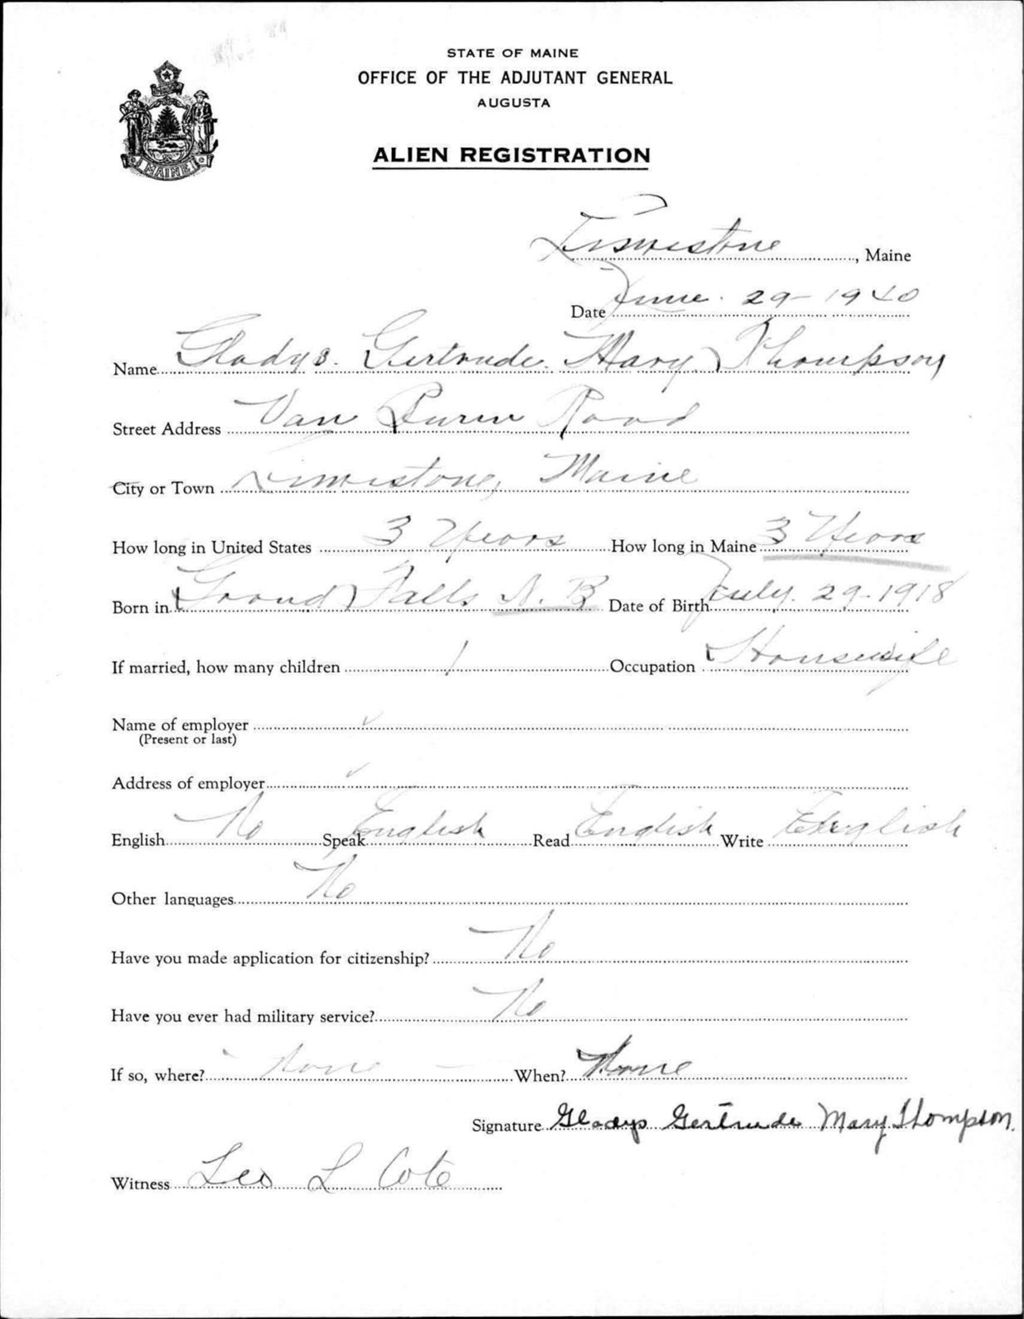 STATE OF MAINE
OFFICE OF THE ADJUTANT GENERAL
AUGUSTA
MAINE
ALIEN REGISTRATION
Limestone, Maine
Date June 29-1940
Name Gladys. Gertrude. Mary. Thompson
Street Address Van Buren Road
City or Town Limestone, Maine
How long in United States 3 Years How long in Maine 3 Years
Born in Grand Falls N.B Date of Birth July. 29-1918
If married, how many children 1 Occupation Housewife
Name of employer
(Present or last)
Address of employer
English No Speak English Read English Write English
Other languages No
Have you made application for citizenship? No
Have you ever had military service? No
If so, where? None When? None
Signature Gladys Gertrude Mary Thompson.
Witness Leo L Cote